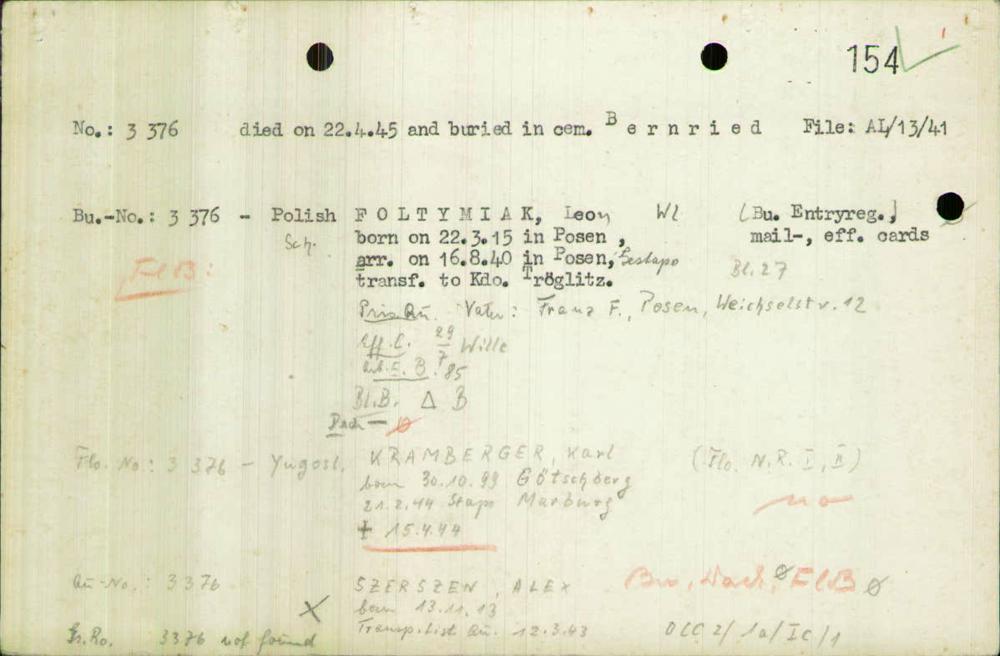 154
No.: 3 376 died on 22.4.45 and buried in cem. Bernried File: AL/13/41
Bu.-No.: 3 376 - Polish FOLTYMIAK, Leon Wl (Bu. Entryreg.)
Sch. born on 22.3.15 in Posen, mail-, eff. cards
FlB: arr. on 16.8.40 in Posen, Gestapo Bl. 27
transf. to Kdo. Tröglitz.
Vater: Franz F., Posen, Weichselstr. 12
Eff. C. 29/7 Wille
E. B. 85
Bl.B. Δ B
Dach — Ø
Flo. No.: 3 376 - Yugosl. KRAMBERGER, Karl (Flo. N.R. I, II)
born 30.10.99 Götschberg
21.2.44 Stapo Marburg no
† 15.4.44
Au-No.: 3376 SZERSZEN, ALEX Bu, Dach, Ø FlB Ø
X born 13.11.13
Gr.Ro. 3376 not found Transp. list Au. 12.3.43 OCC 2/1a/IC/1